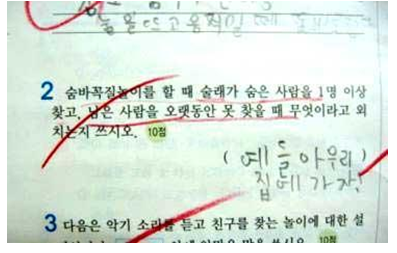 움직일 때
2 숨바꼭질놀이를 할 때 술래가 숨은 사람을 1명 이상
찾고, 남은 사람을 오랫동안 못 찾을 때 무엇이라고 외
치는지 쓰시오. 10점
( 얘들아 우리
집에 가자!
3 다음은 악기 소리를 듣고 친구를 찾는 놀이에 대한 설
10점